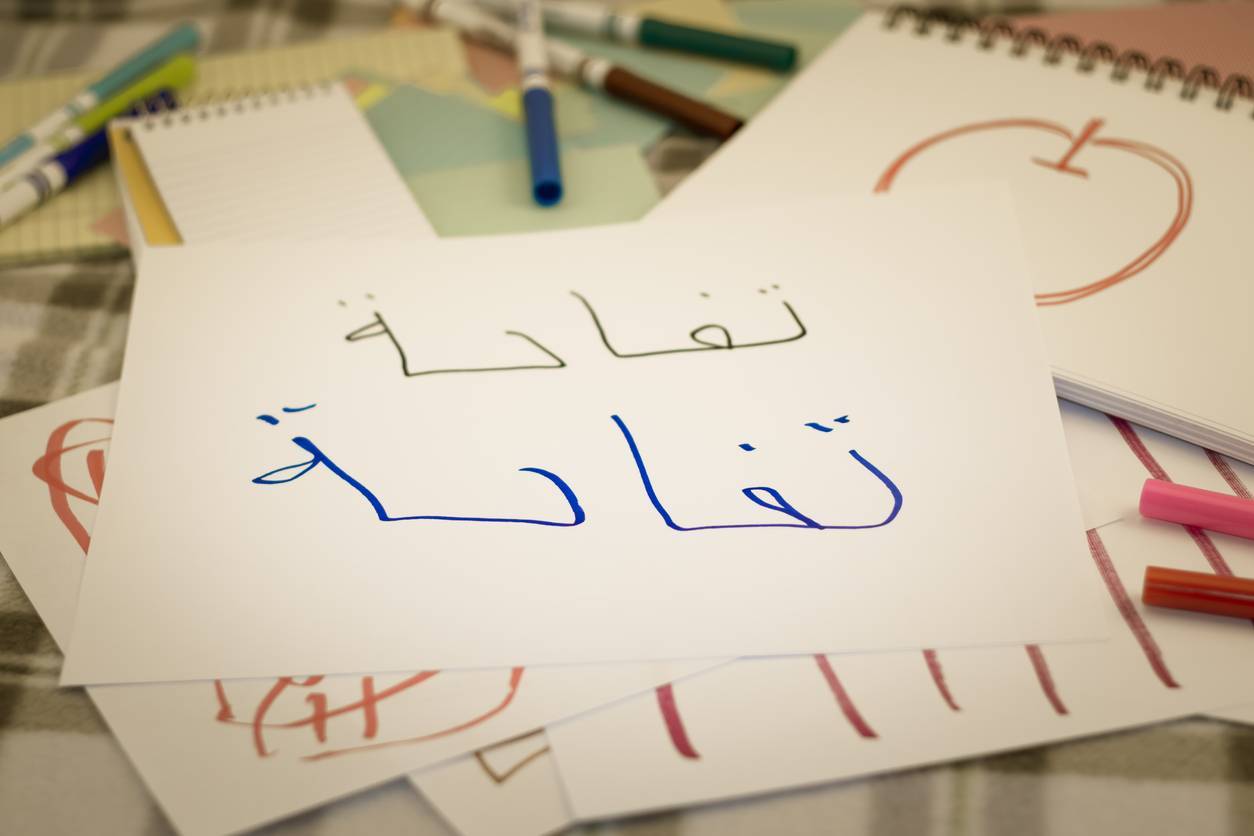 تفاحة
تفاحة